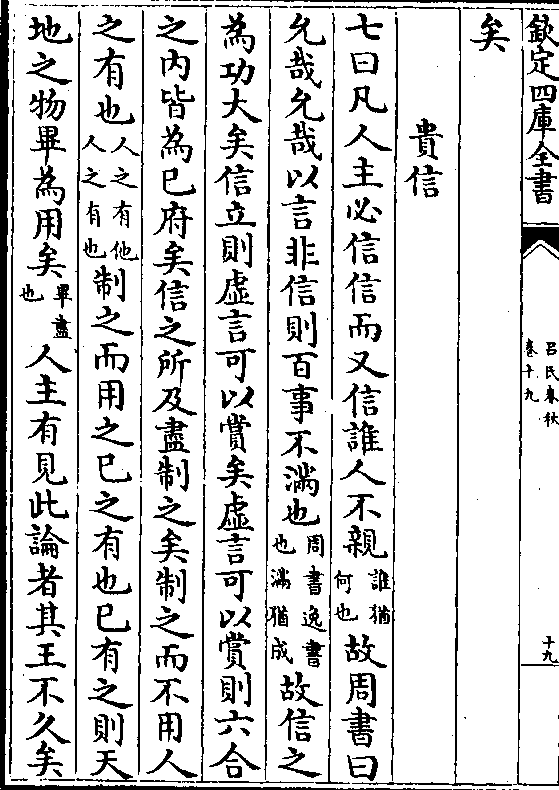 欽定四庫全書
呂氏春秋
卷十九
十九
矣
貴信
七曰凡人主必信信而又信誰人不親誰猶何也故周書曰
允哉允哉以言非信則百事不滿也周書逸書也滿猶成故信之
為功大矣信立則虛言可以賞矣虛言可以賞則六合
之内皆為已府矣信之所及盡制之矣制之而不用人
之有也人之有他人之有也制之而用之已之有也已有之則天
地之物畢為用矣畢盡也人主有見此論者其王不久矣